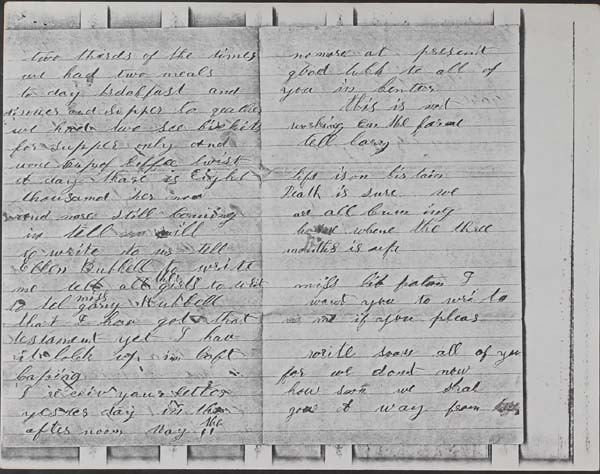 two thirds of the times
we had two meals
to day brdakfast and
dinner and supper to geather
we had two see biskits
for supper only and
wone cup of coffee twist
a day thare is Eight
thousand her now
and more still coming
in tell will
to write to us tell
Ellen Bubbell to write
me tell all the girls to writ
to tel miss gany Hubbell
that I hav got that
testament yet I hav
it
I receiv your letter
yester day in the
after noon May the 11
no more at present
good luck to all of
you in benton
this is not
working on the farm
tell larry
life is on sir tain
Death is sure we
are all cum ing
home whene the three
months is up
miss lib palon I
want you to wri to
me if you pleas
write soon all of you
for we dont now
how soon we shal
go a way from